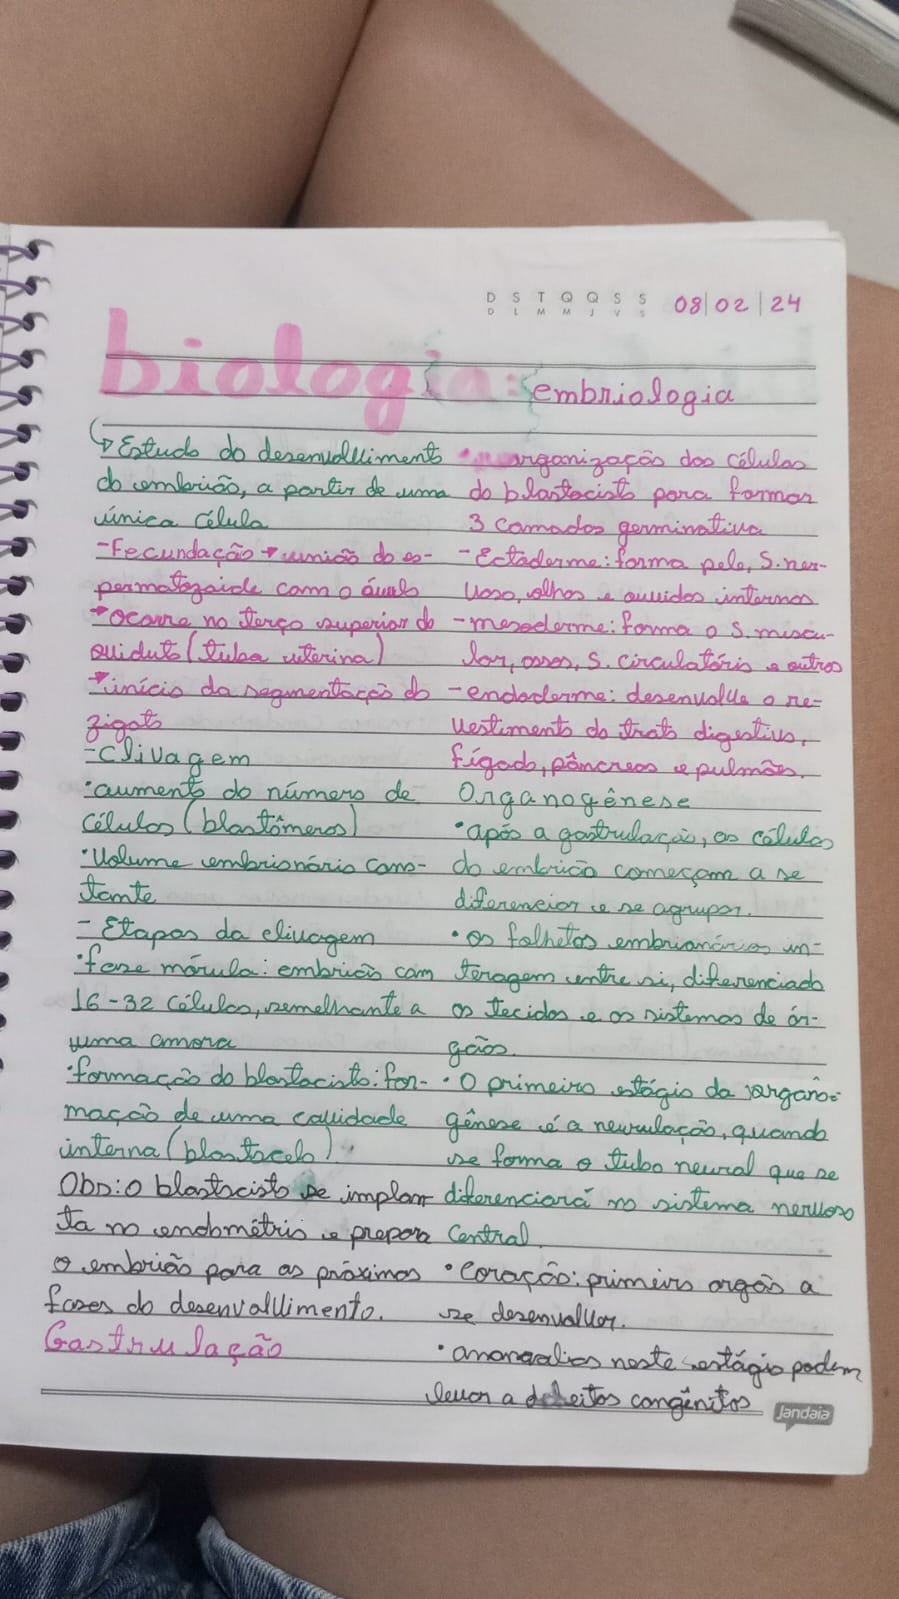 D S T Q Q S S
D L M M J V S
08/02/24
biologia:
embriologia
↳ Estudo do desenvolvimento
do embrião, a partir de uma
única célula
-Fecundação → união do es-
permatozoide com o óvulo
→ ocorre no terço superior do
oviduto (tuba uterina)
→ início da segmentação do
zigoto
-Clivagem
•aumento do número de
células (blastômeros)
•Volume embrionário cons-
tante
- Etapas da clivagem
•fase mórula: embrião com
16-32 células, semelhante a
uma amora
•formação do blastocisto: for-
mação de uma cavidade
interna (blastocelo)
Obs: O blastocisto se implan
ta no endométrio e prepara
o embrião para as próximas
fases do desenvolvimento.
Gastrulação
• organização das células
do blastocisto para formar
3 camadas germinativa
- Ectoderme: forma pele, S. ner-
voso, olhos e ouvidos internos
- mesoderme: forma o S. muscu-
lar, ossos, S. circulatório e outros
- endoderme: desenvolve o re-
vestimento do trato digestivo,
fígado, pâncreas e pulmões.
Organogênese
•após a gastrulação, as células
do embrião começam a se
diferenciar e se agrupar.
• os folhetos embrionários in-
teragem entre si, diferenciado
os tecidos e os sistemas de ór-
gãos.
• O primeiro estágio da organo-
gênese é a neurulação, quando
se forma o tubo neural que se
diferenciará no sistema nervoso
Central.
• Coração: primeiro orgão a
se desenvolver.
• anomalias neste estágio podem
levar a defeitos congênitos
Jandaia